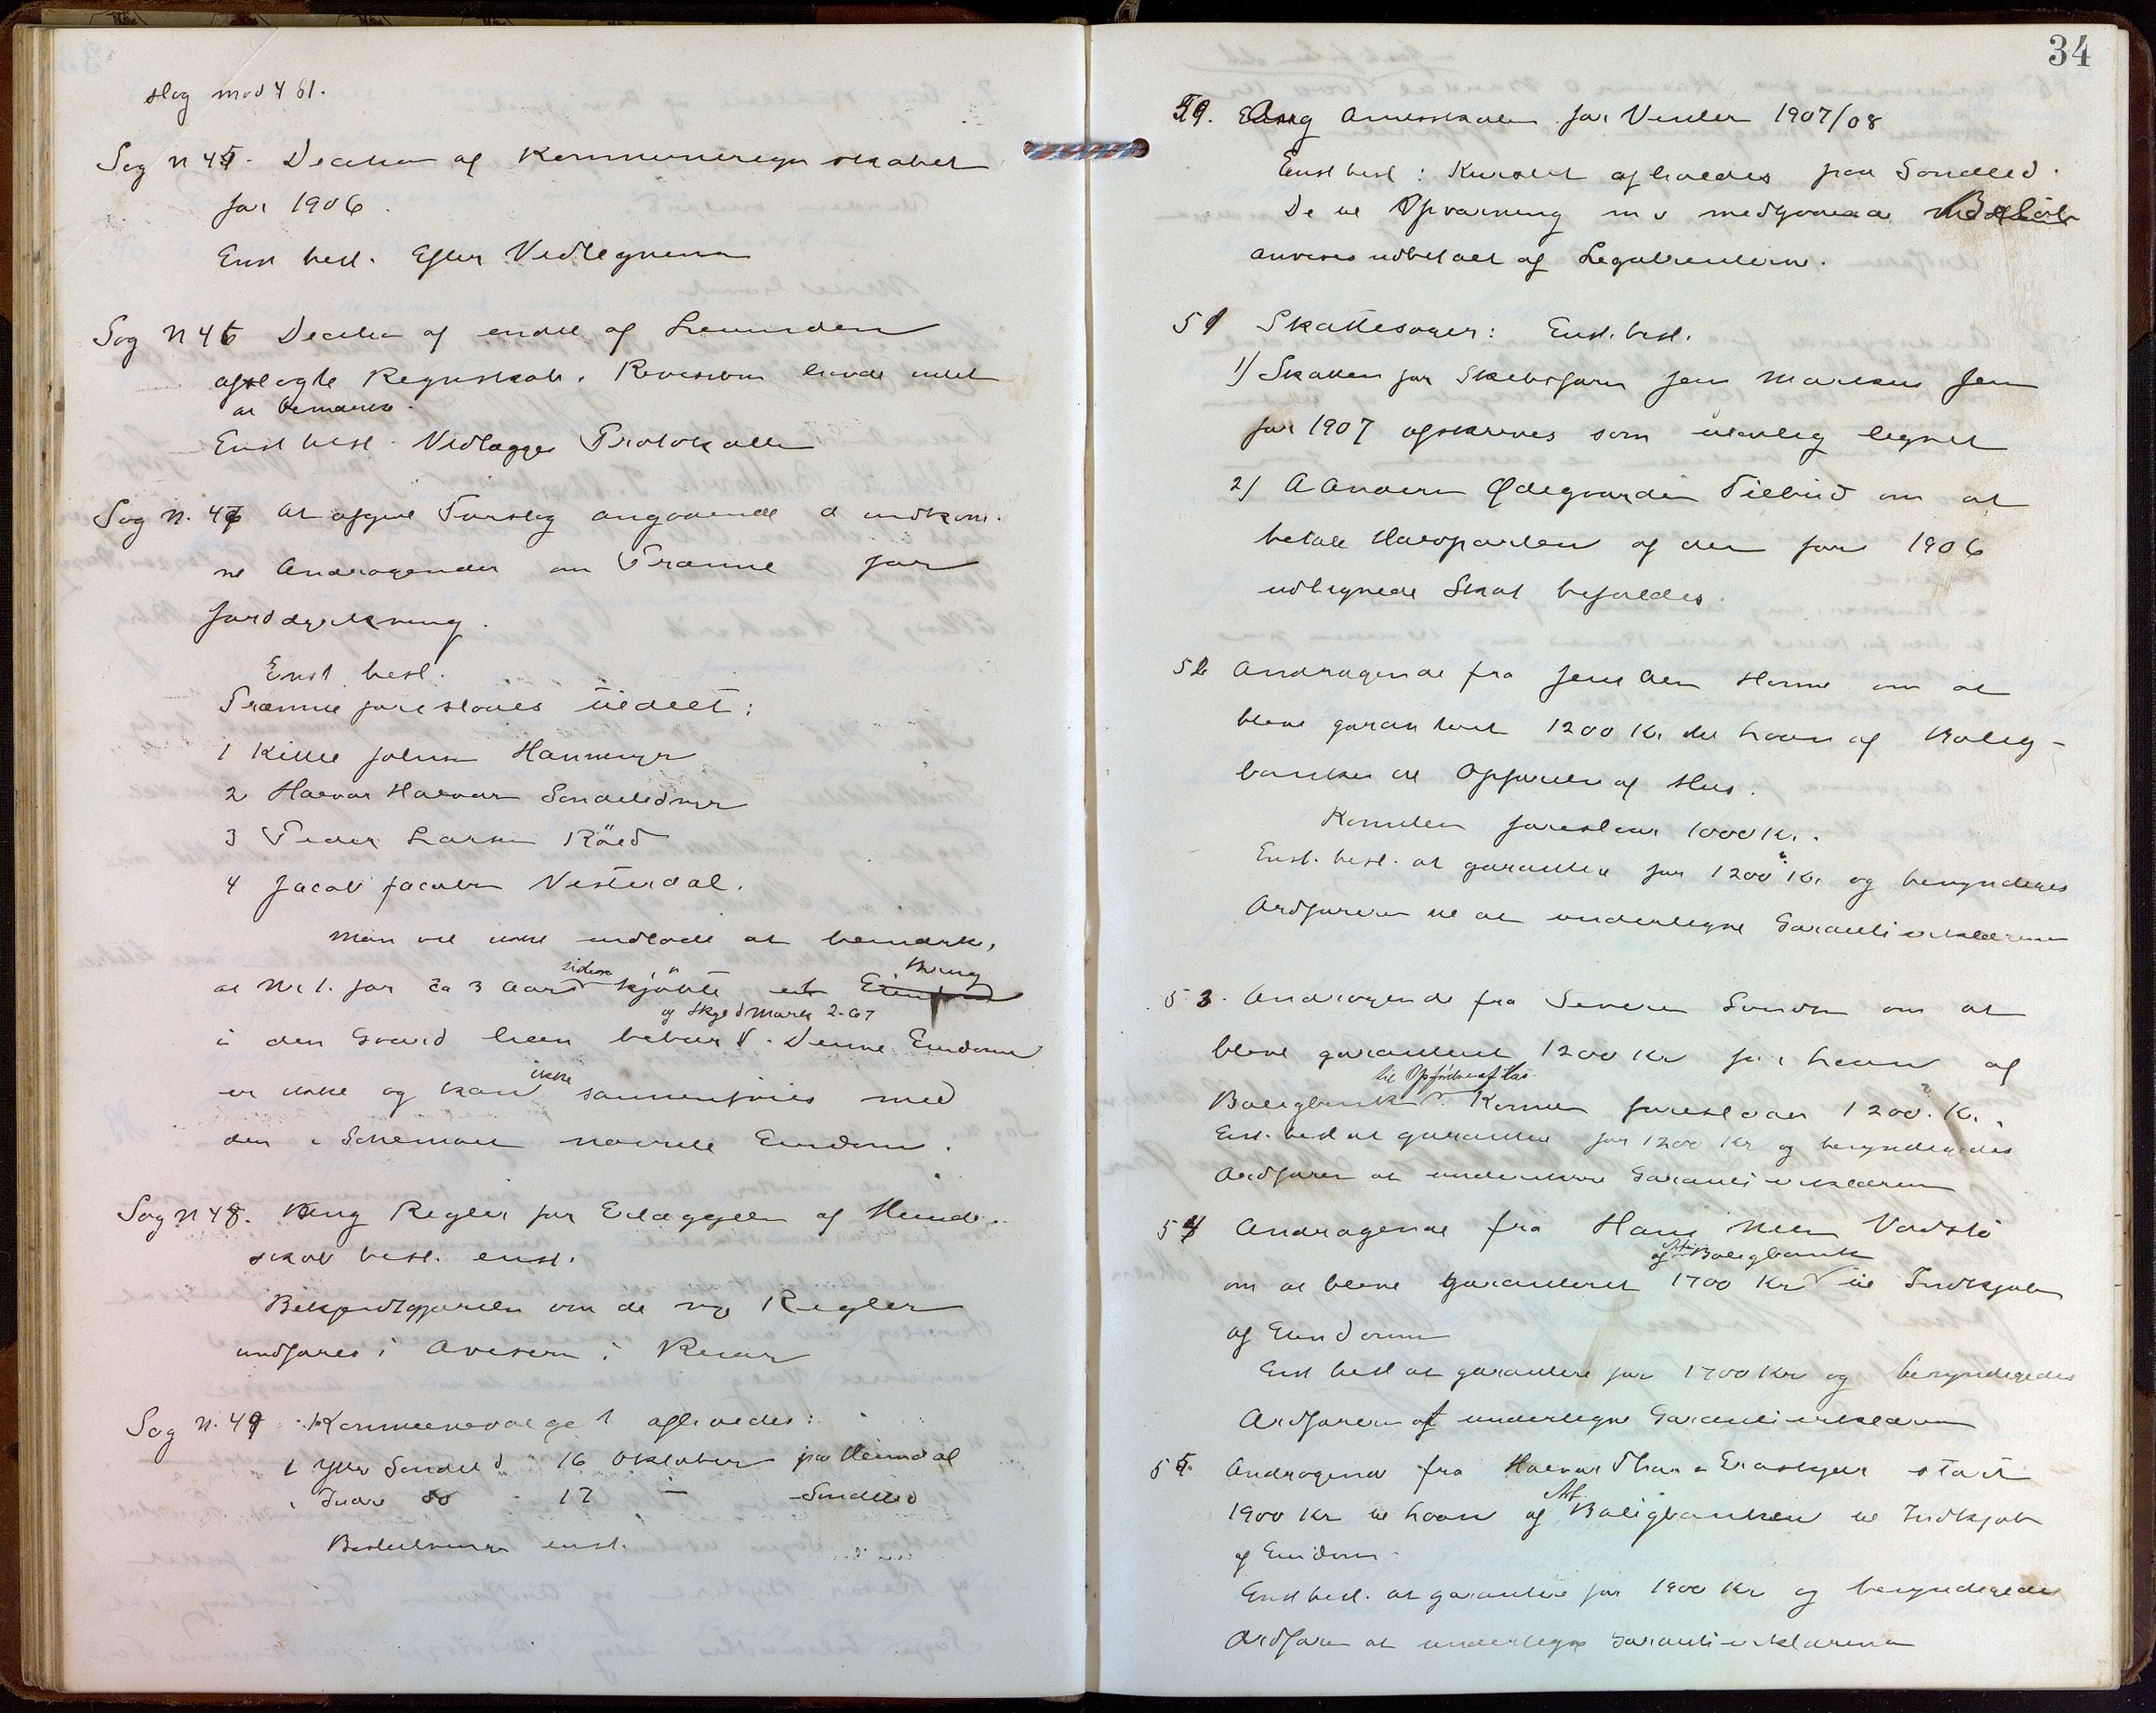 slag mod 4 st.
Sag N 45. Decision af Kommuneregnskabet
for 1906.
Enst besl. Efter Vedtegnene
Sag N 46 Decision af endel af Lensmanden
aflagte Regnskab. Revisionen havde intet
at bemærke.
Enst besl. Vedlægges Protokollen
Sag N. 47 At afgive Forslag angaaende de indkom-
ne Andragender om Præmie for
Jorddyrkning.
Enst besl.
Præmie foreslaaes tildelt:
1 Kittel Johnsen Hammyr
2 Halvor Halvorsen Søndeledmyr
3 Peder Larsen Röed
4 Jacob Jacobsen Vesterdal.
Man vil ikke undlade at bemærke,
siden Brug
at Nr 1. for ca 3 Aar kjöbte et Eiendom
og Skyld Mark 2-67
i den Gaard han bebor. Denne Eiendom
ikke
er ikke og kan sammenføies med
den i Schemaet nævnte Eiendom.
Sag N 48. Ang Regler for Erlæggelse af Hunde-
skat besl. enst.
Bekjendtgjørelse om de nye Regler
indføres i Aviserne i Risør
Sag N. 49 Kommunevalget afholdes:
i Ytre Søndeled 16 Oktober paa Heimdal
i Indre do - 17 — - Søndeled
Beslutningen enst.
34
50. Ang Amtsskolen for Vinter 1907/08
Enst besl: Kurset afholdes paa Søndeled.
De til Opvarming m v medgaaede Belöb
anvises udbetalt af Legatrenterne.
51 Skattesager: Enst. besl.
1) Skatten for Skibsfører Jens Markus Jensen
for 1907 afskrives som ulovlig lignet
2) A Andersen Ødegaarden Tilbud om at
betale Halvparten af den for 1906
udlignede Skat bifaldes.
52 Andragende fra Jens Olsen Horne om at
blive garanteret 1200 Kr til Laan af Bolig-
banken til Opførelse af Hus.
Komiteen foreslaar 1000 Kr.
Enst. besl. at garantere for 1200 Kr og bemyndiges
Ordføreren til at undertegne Garantierklæringen
53. Andragende fra Severin Sunden om at
blive garanteret 1200 Kr for Laan af
til Opførelse af Hus.
Boligbanken. Komiteen foreslaar 1200. Kr.
Enst. besl at garantere for 1200 Kr og bemyndigedes
Ordfører at underskrive Garantierklæringen
54 Andragende fra Hans Nilsen Vadstö
af Arb. Boligbank
om at blive garanteret 1700 Kr til Indkjøb
af Eiendomme
Enst besl at garantere for 1700 Kr og bemyndigedes
Ordføreren at undertegne Garantierklæringen
55. Andragende fra Halvor Eraskjer stort
Arb.
1900 Kr til Laan af Boligbanken til Indkjøb
af Eiendom.
Enst besl. at garantere for 1900 Kr og bemyndigedes
Ordføren at undertegne Garantierklæringen